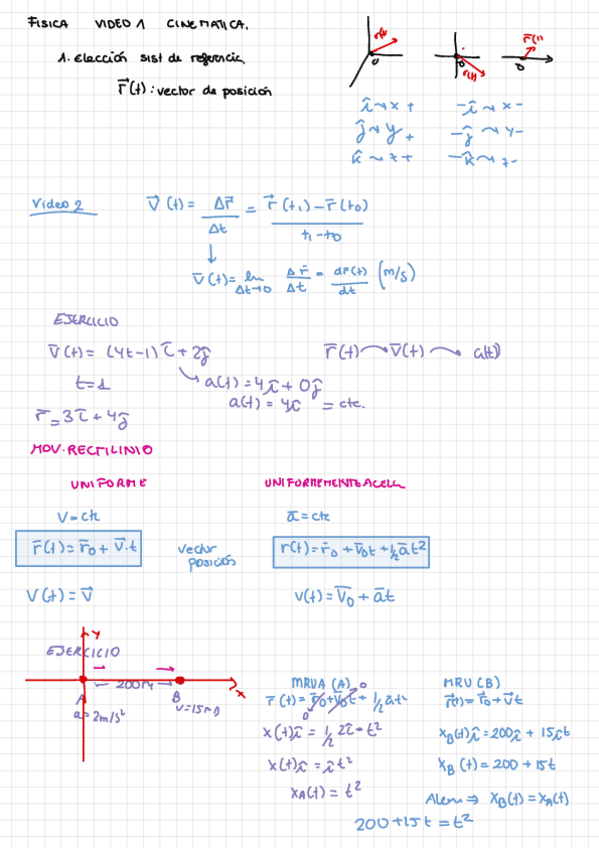 FISICA VIDEO 1 CINEMATICA.
1. Elección sist de referencia.
r⃗(t): vector de posición
r(t)
O
r(t)
O
r⃗(t)
O
î ~ x + -î ~ x -
ĵ ~ y + -ĵ ~ y -
k̂ ~ z + -k̂ ~ z -
Video 2
v⃗(t) = Δr̄/Δt = (r⃗(t₁) - r̄(t₀))/(t₁ - t₀)
↓
v̄(t) = lim Δt→0 Δr̄/Δt = dr̄(t)/dt (m/s)
EJERCICIO
v̄(t) = (4t-1)î + 2ĵ r̄(t) → v̄(t) → a(t)
t = 1 a(t) = 4î + 0ĵ
a(t) = 4î = cte.
r̄ = 3î + 4ĵ
MOV. RECTILINIO
UNIFORME UNIFORMEMENTE ACELER
V = cte ā = cte
r̄(t) = r̄₀ + v̄·t vector posición r(t) = r̄₀ + v̄₀t + 1/2 āt²
V(t) = v̄ v(t) = v̄₀ + āt
EJERCICIO
y
x
200m
A B
a = 2m/s² v = 15m/s
MRUA (A) MRU (B)
r̄(t) = r̄₀ + v̄₀t + 1/2 āt² r⃗(t) = r⃗₀ + v⃗t
0 0
x(t)î = 1/2 2î · t² x_B(t)î = 200î + 15ît
x(t)î = ît² x_B(t) = 200 + 15t
x_A(t) = t² ⇒ x_B(t) = x_A(t)
200 + 15t = t²